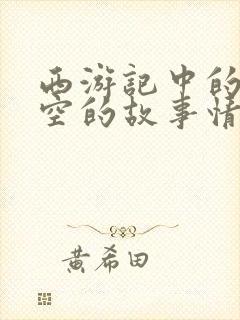 西游記中的
空的故事情
黃希田